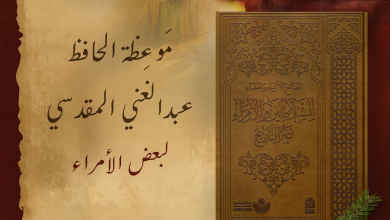 مَوعِظة الحافظ
عبدالغني المقدسي
لبعض الأمراء
للسلاطين والأمراء
عبر التاريخ